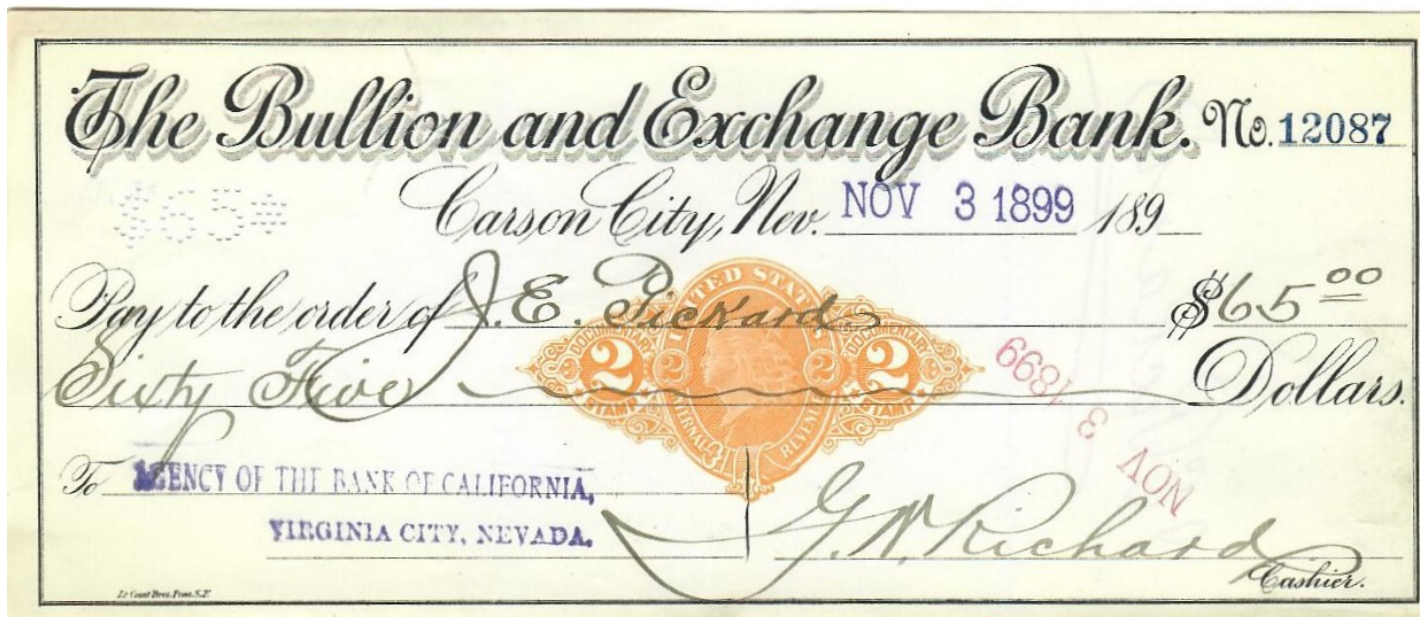 The Bullion and Exchange Bank. No. 12087
$65
Carson City, Nev. NOV 3 1899 189
Pay to the order of J. E. Pickard $65 00
Sixty Five Dollars.
UNITED STATES
DOCUMENTARY DOCUMENTARY
2 2 2 2
STAMP STAMP
INTERNAL REVENUE
NOV 3 1899
To AGENCY OF THE BANK OF CALIFORNIA,
VIRGINIA CITY, NEVADA.
G. W. Richard
Cashier.
Le Count Bros. Print. S.F.